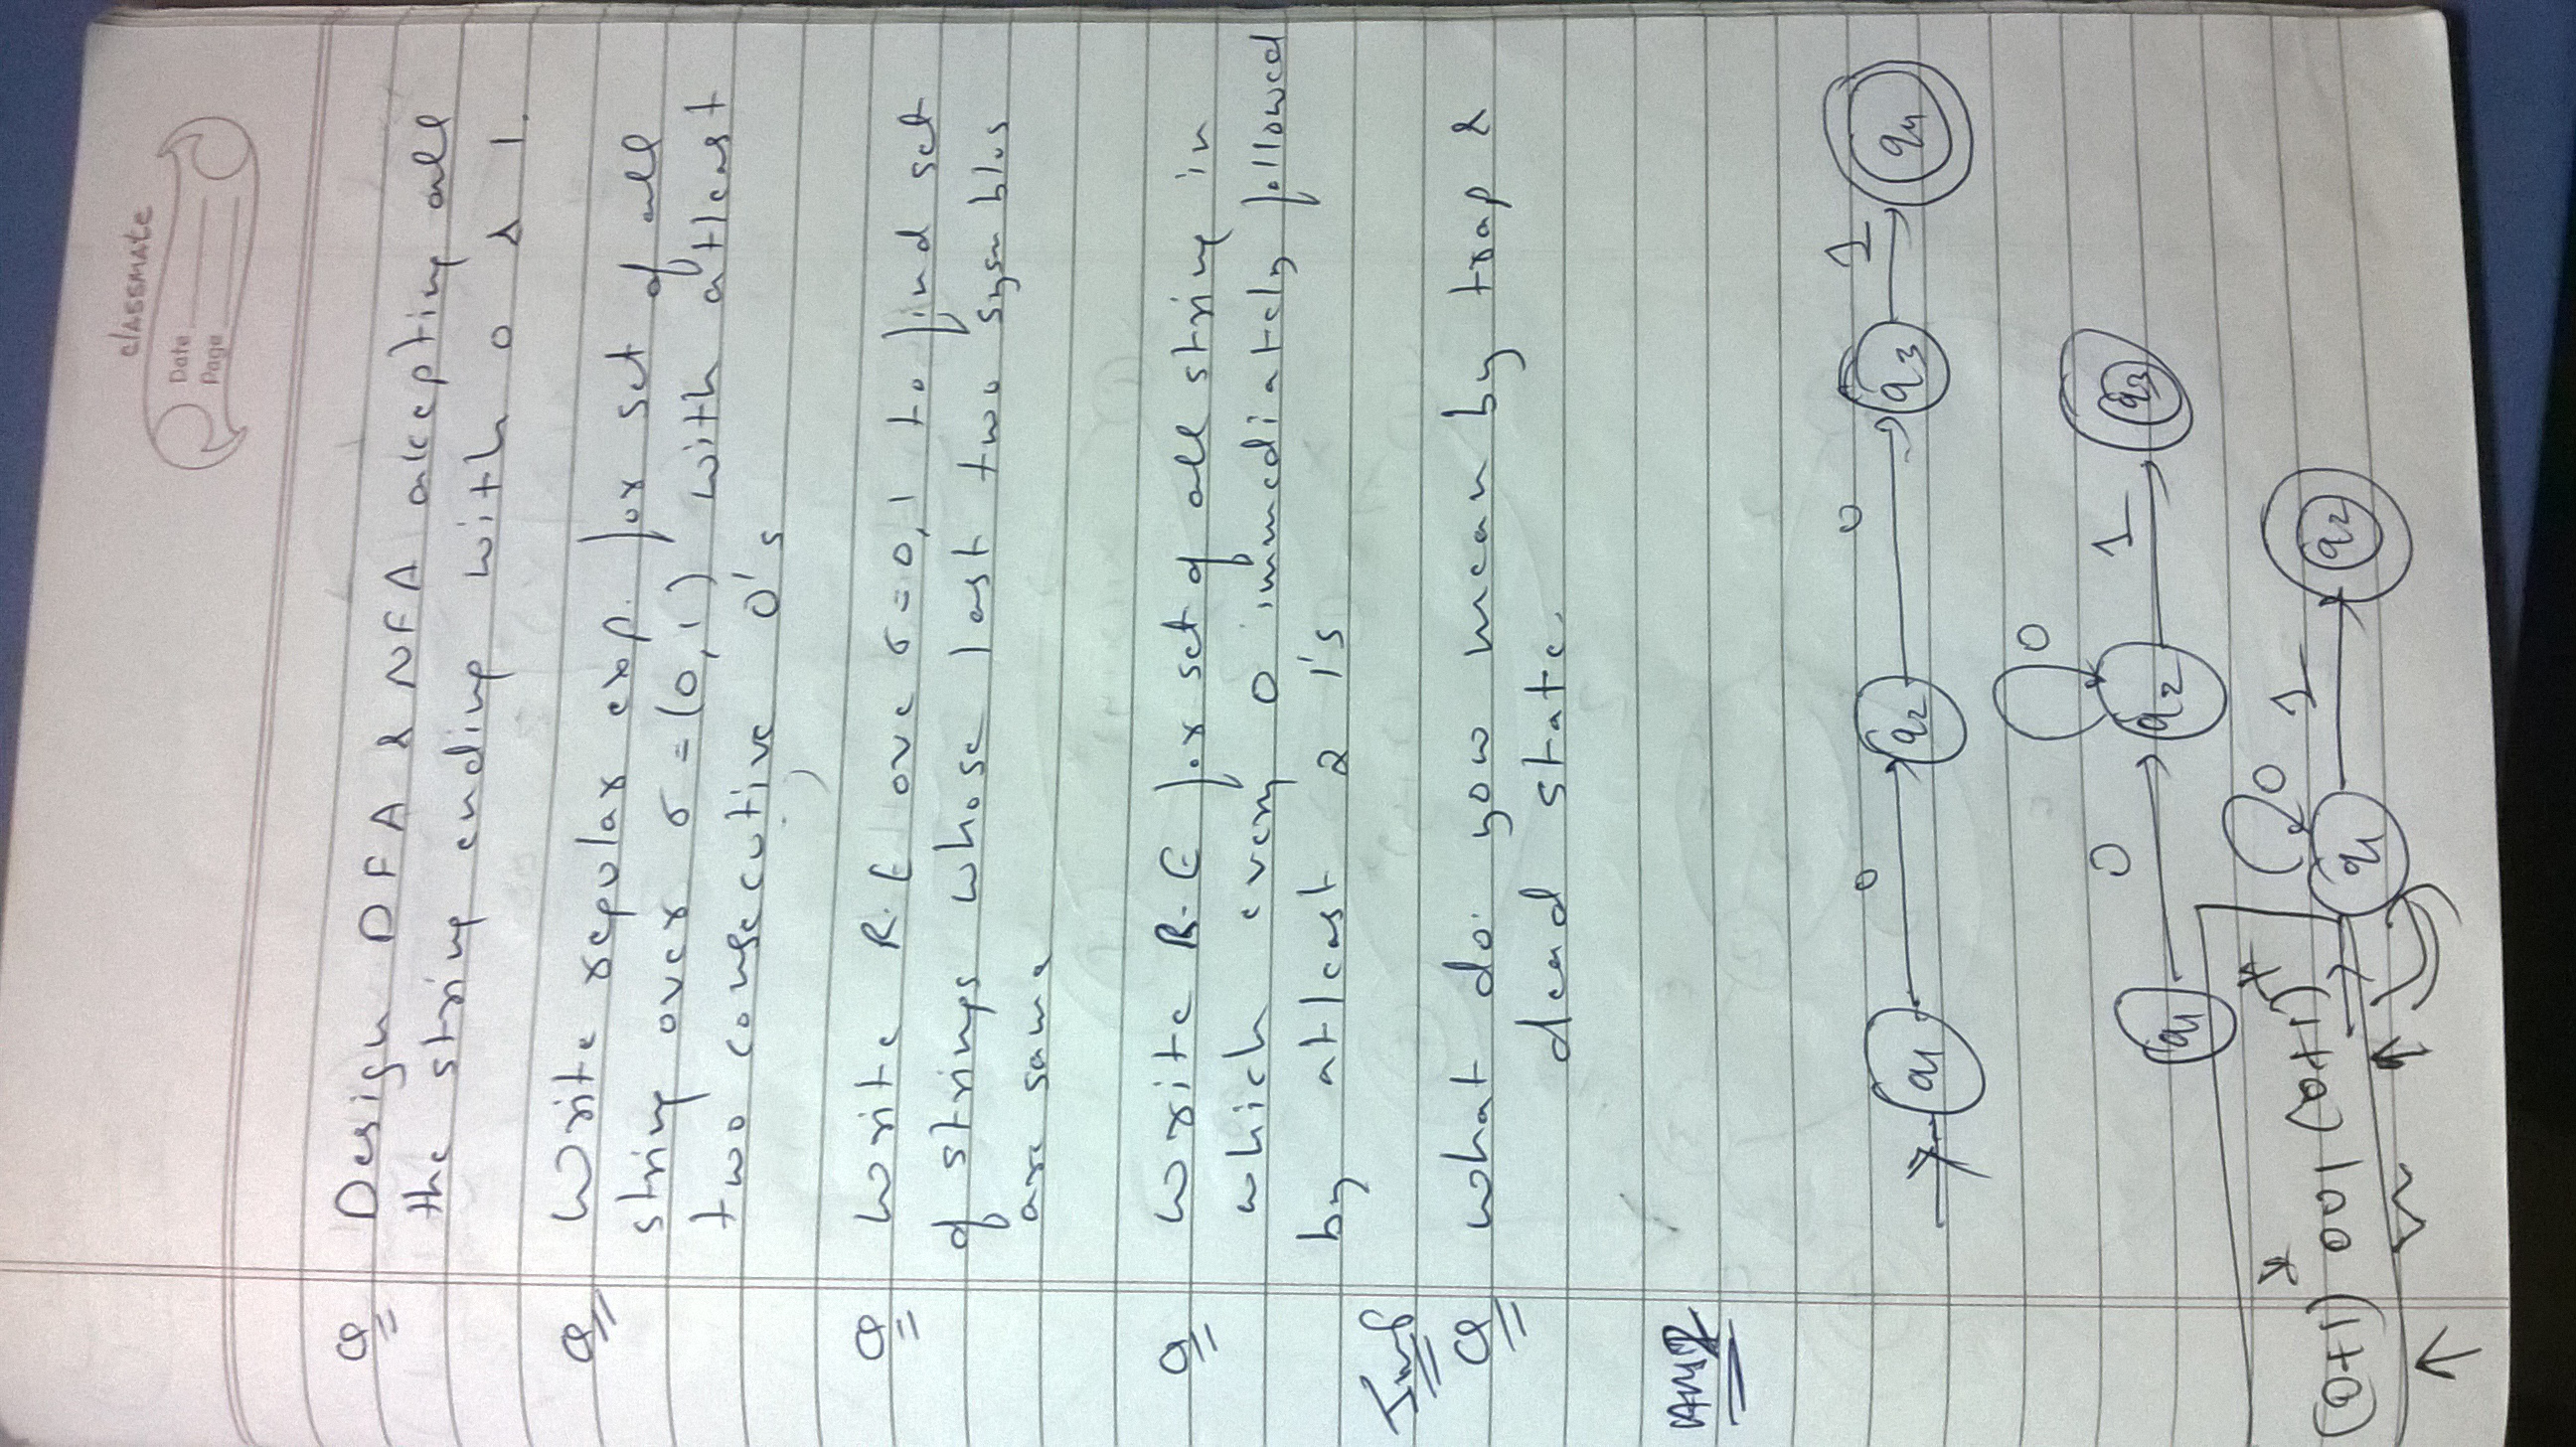 classmate
Date
Page
Q Design DFA & NFA accepting all
the string ending with 0 & 1.
Q Write regular exp. for set of all
string over σ = (0,1) with atleast
two consecutive 0's
Q Write R.E ove σ=0,1 to find set
of strings whose last two sysmblos
are same
Q Write R.E for set of all string in
which every 0 immediately followed
by atleast 2 1's
Imp
Q what do you mean by trap &
dead state.
Ans
q1 0 q2 0 q3 1 q4
0
q1 0 q2 1 q3
(0+1)* 001 (0+1)*
0
q1 1 q2